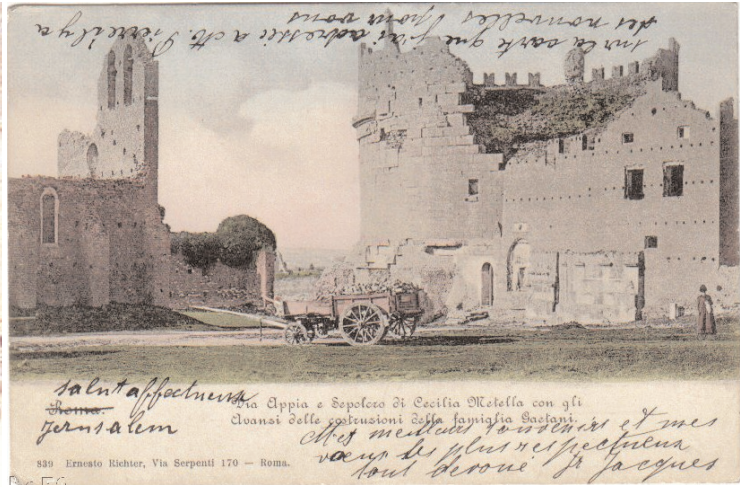 sur la carte que j'ai adressée a M. Pierre il y a
des nouvelles pour vous
salut affectueux
Roma.
Jerusalem
Via Appia e Sepolcro di Cecilia Metella con gli
Avansi delle costruzioni della famiglia Gaetani.
Mes meilleurs souvenirs et mes
vœux les plus respectueux
tout dévoué Jr Jacques
839 Ernesto Richter, Via Serpenti 170 — Roma.